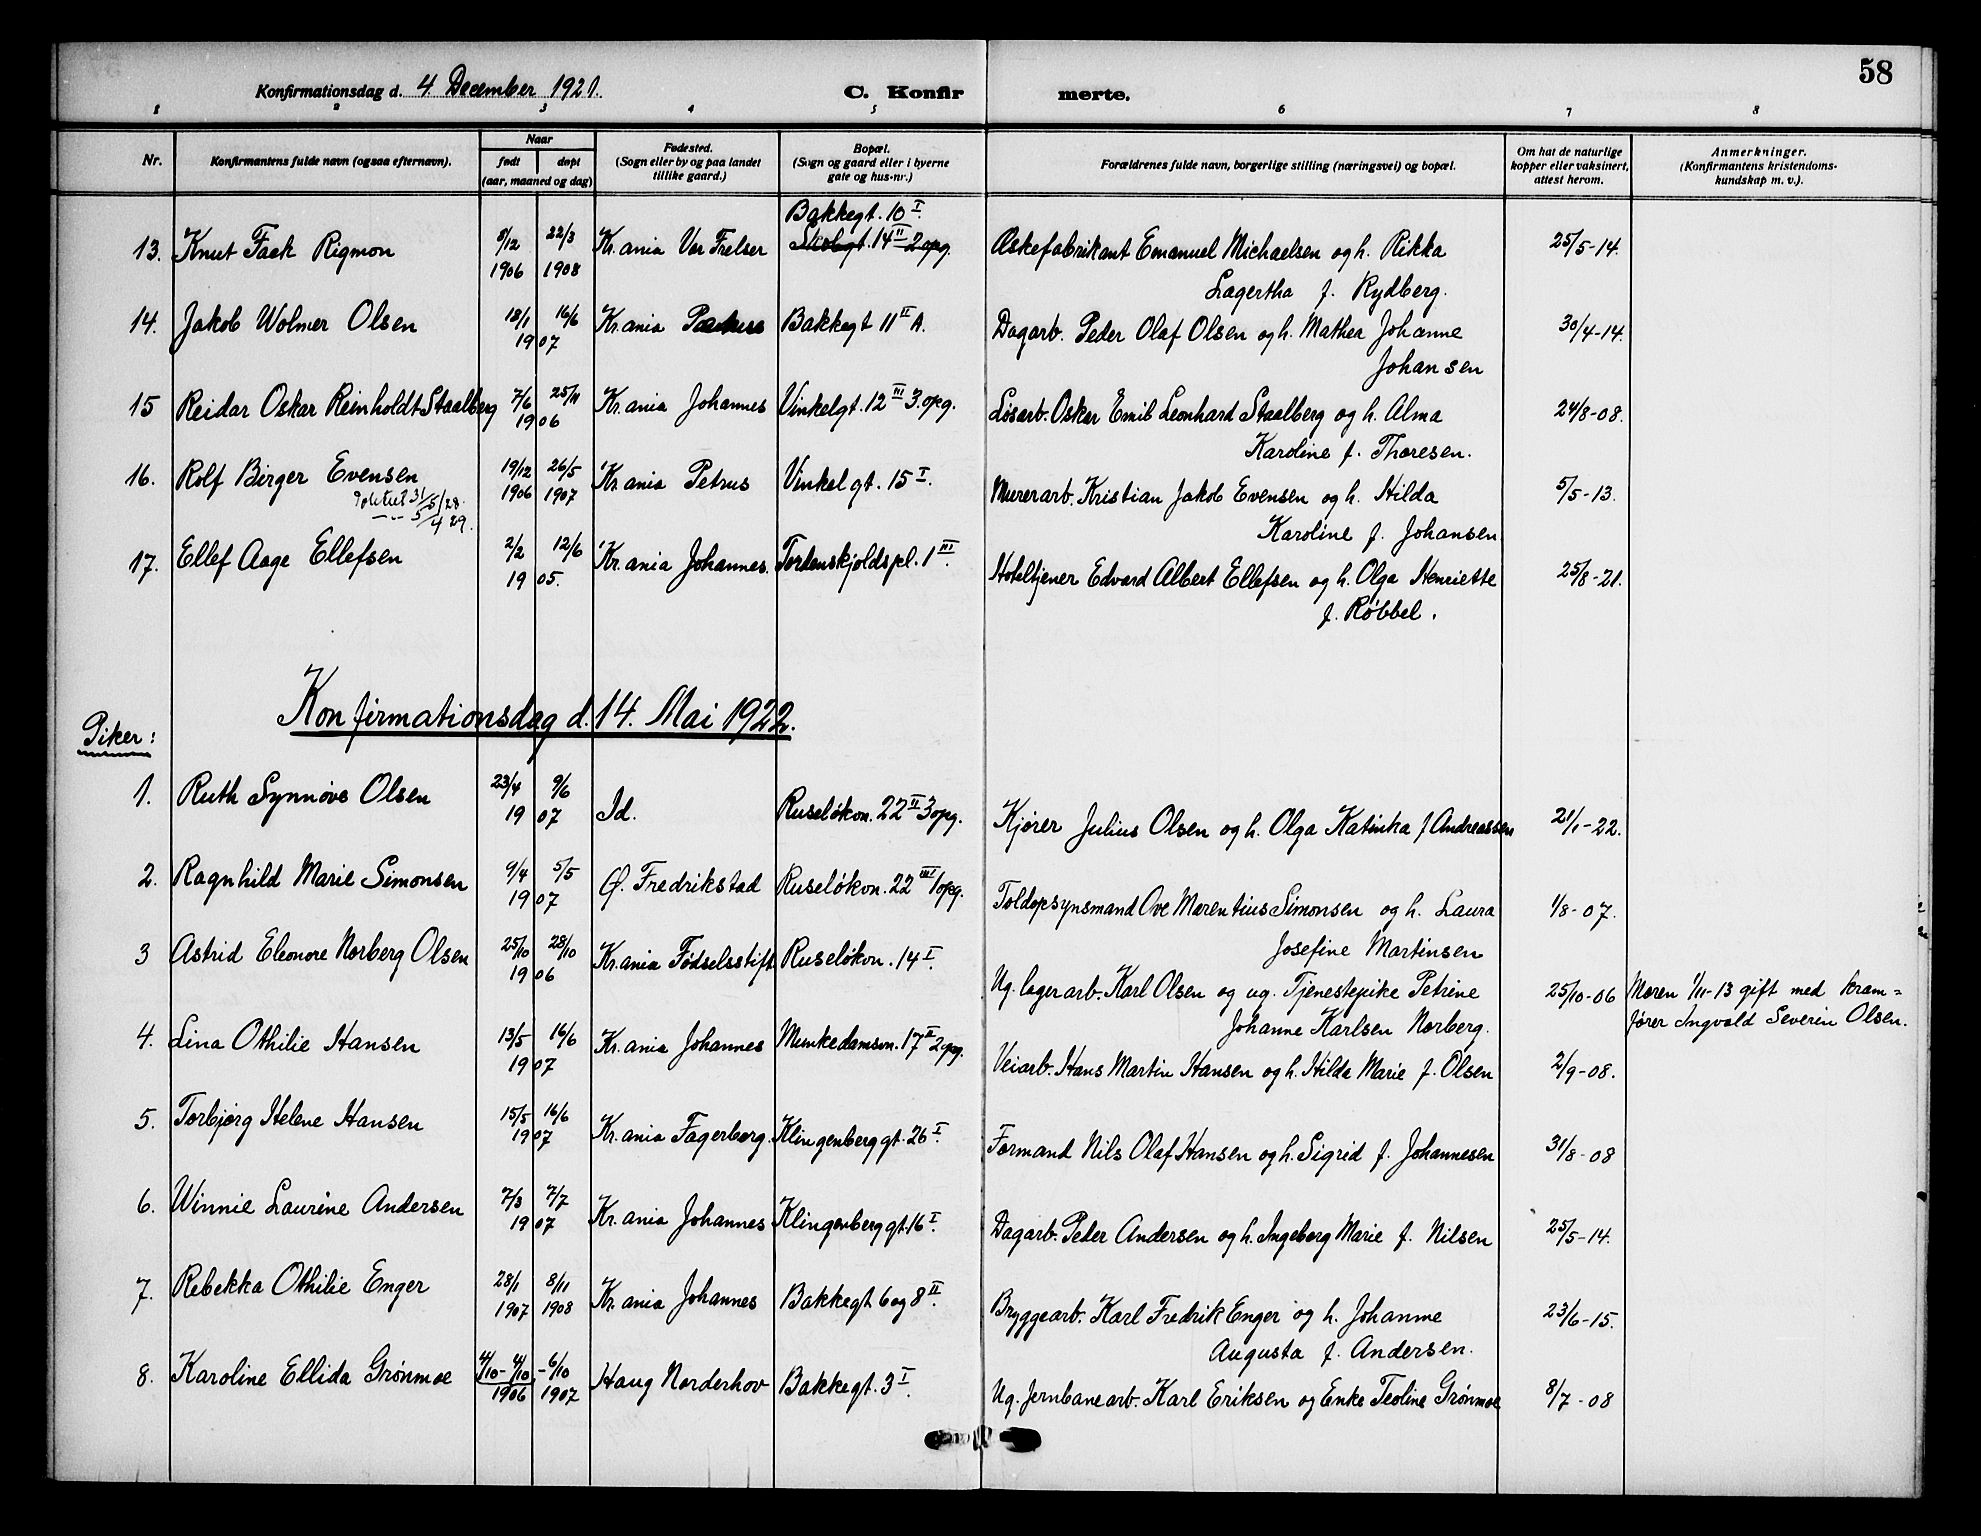 58
Konfirmationsdag d. 4. December 1921.
C. Konfirmerte.
1 2 3 4 5 6 7 8
Nr.
Konfirmantens fulde navn (ogsaa efternavn).
Naar
født
døpt
(aar, maaned og dag)
Fødested.
(Sogn eller by og paa landet
tillike gaard.)
Bopæl.
(Sogn og gaard eller i byerne
gate og hus-nr.)
Forældrenes fulde navn, borgerlige stilling (næringsvei) og bopæl.
Om hat de naturlige
kopper eller vaksinert,
attest herom.
Anmerkninger.
(Konfirmantens kristendoms-
kundskap m. v.).
Bakkegt. 10 I.
13. Knut Faek Rigmon 8/12 22/3 Kr.ania Vor Frelser 14 II 2 opg. Æskefabrikant Emanuel Michaelsen og h. Rikka 25/5-14.
1906 1908 Lagertha f. Rydberg.
14. Jakob Wolmer Olsen 18/1 16/6 Kr.ania Bakkegt 11 II A. Dagarb. Peder Olaf Olsen og h. Mathea Johanne 30/4-14.
19 07 Johansen
15 Reidar Oskar Reinholdt Staalberg 7/6 25/11 Kr.ania Johannes Vinkelgt. 12 III 3. opg. Løsarb. Oskar Emil Leonhard Staalberg og h. Alma 24/8-08.
19 06 Karoline f. Thoresen.
16. Rolf Birger Evensen 19/12 26/5 Kr.ania Petrus Vinkelgt. 15 I. Murerarb. Kristian Jakob Evensen og h. Hilda 5/5-13.
31/5/28. 1906 1907 Karoline f. Johansen
5/4 29.
17. Ellef Aage Ellefsen 2/2 12/6 Kr.ania Johannes. Tordenskjoldspl. 1 III. Hoteltjener Edvard Albert Ellefsen og h. Olga Henriette 25/8-21.
19 05. f. Røbbel.
Konfirmationsdag d. 14. Mai 1922.
Piker:
1. Ruth Synnøve Olsen 23/4 9/6 Id. Ruseløkvn. 22 II 3 opg. Kjører Julius Olsen og h. Olga Katinka f Andreassen 21/1-22.
19 07
2. Ragnhild Marie Simonsen 9/4 5/5 Ø. Fredrikstad Ruseløkvn. 22 III 1 opg. Toldopsynsmand Ove Marentius Simonsen og h. Laura 1/8-07.
19 07 Josefine Martinsen
3 Astrid Eleonore Norberg Olsen 25/10 28/10 Kr.ania Fødselsstift. Ruseløkvn. 14 I. Ug. lagerarb. Karl Olsen og ug. Tjenestepike Petrine 25/10-06 Moren 1/11-13 gift med kram=
19 06 Johanne Karlsen Norberg. fører Ingvald Severin Olsen.
4. Lina Othilie Hansen 13/5 16/6 Kr.ania Johannes Munkedamsvn. 17 II 2 opg. Veiarb. Hans Martin Hansen og h. Hilda Marie f. Olsen 2/9-08.
19 07
5. Torbjørg Helene Hansen 15/5 16/6 Kr.ania Fagerborg. Klingenberggt. 26 I. Formand Nils Olaf Hansen og h. Sigrid f. Johannesen 31/8-08
19 07
6. Winnie Laurine Andersen 7/3 7/7 Kr.ania Johannes Klingenberggt. 16 I. Dagarb. Peder Andersen og h. Ingeborg Marie f. Nilsen 25/5-14.
19 07
7. Rebekka Othilie Enger 28/1 8/11 Kr.ania Johannes Bakkegt 6 og 8 II. Bryggearb. Karl Fredrik Enger og h. Johanne 23/6-15.
1907 1908 Augusta f. Andersen.
8. Karoline Ellida Grønmoe 4/10 - 4/10 - 6/10 Haug Norderhov Bakkegt. 3 I. Ug. Jernbanearb. Karl Eriksen og Enke Teoline Grønmoe 8/7-08
1906 1907